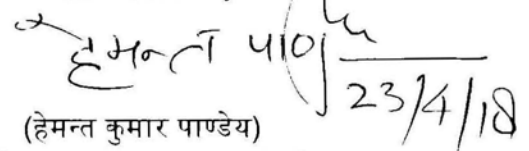 हेमन्त पाण्डेय
23/4/18
(हेमन्त कुमार पाण्डेय)